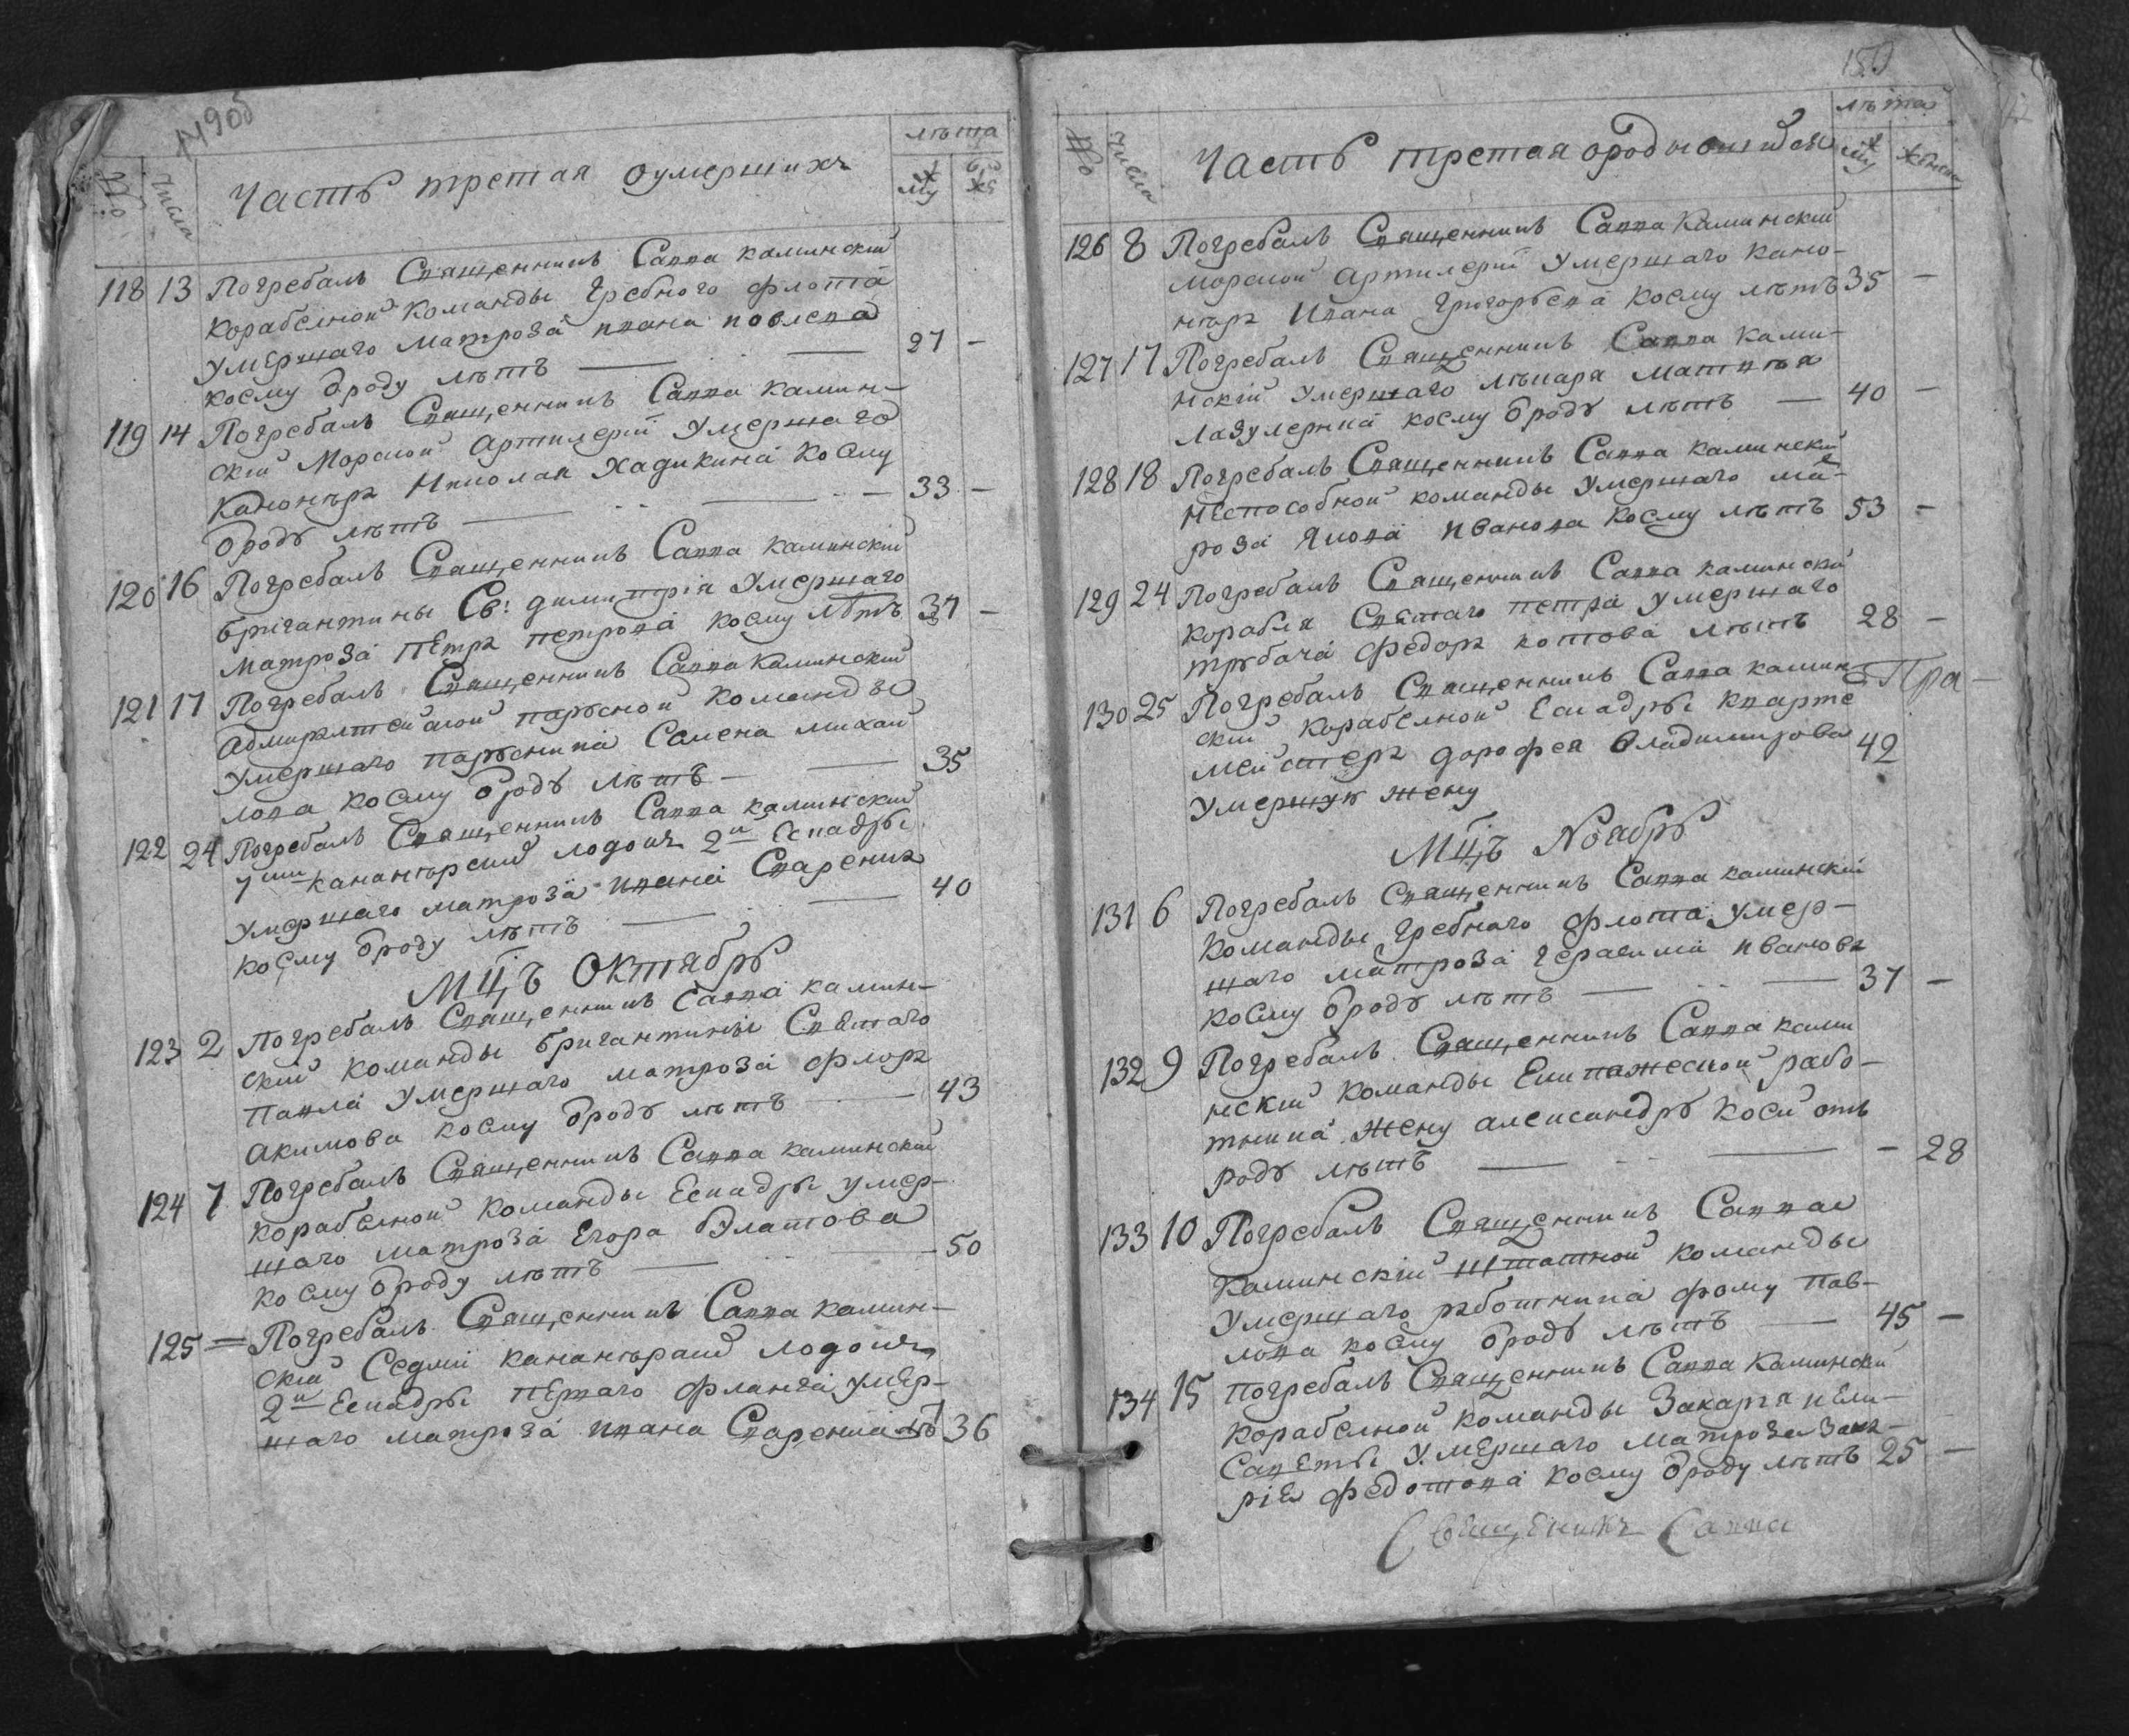 149об
№
числа
Часть третая оумершихъ
лѣта
муж
жен
118 13 Погребалъ Священникъ Савва каминскии
корабелнои команды Гребного флота
умершаго матроза ивана
коему ѿроду лѣтъ — 27 —
119 14 Погребалъ Священникъ Савва камин-
скіи Морскои Артилеріи Умершаго
Николая Хадикина коему
ѿродꙋ лѣтъ — 33 —
120 16 Погребалъ Священникъ Савва каминскіи
бригантины Св: димитрія Умершаго
матроза Петра петрова коему лѣтъ 37 —
121 17 Погребалъ Священникъ Савва Каминскии
Адмиралтейской парусной команды
умершаго парусника Семена михай
лова коему ѿродꙋ лѣтъ — 35
122 24 Погребалъ Священникъ Савва каминскии
7ми кананѣрскихъ лодокъ 2й Ескадры
Умершаго матроза ивана
коему ѿроду лѣтъ — 40
Мц҃ъ Октябрь
123 2 Погребалъ Священникъ Савва камин-
скіи команды бригантины Святаго
павла Умершаго матроза Флора
акимова коему ѿродꙋ лѣтъ — 43
124 7 Погребалъ Священникъ Савва каминскии
корабелнои команды Ескадры умер-
шаго матроза Егора
коему ѿроду лѣтъ — 50
125 = Погребалъ Священникъ Савва камин-
скіи Седми кананѣрскихъ лодокъ
2й Ескадры пѣрваго фланга умер-
шаго матроза ивана лѣтъ 36
150
№
числа
Часть третая
лѣта
муж
женска
126 8 Погребалъ Священникъ Савва Каминскии
морскои Артилеріи Умершаго кано-
нѣра Ивана Григорьева коему лѣтъ 35 —
127 17 Погребалъ Священникъ Савва ками-
нскіи умершаго лѣкаря матвѣя
коему ѿродꙋ лѣтъ — 40 —
128 18 Погребалъ Священникъ Савва каминскии
неспособнои команды Умершаго мат-
роза Якова иванова коему лѣтъ 53 —
129 24 Погребалъ Священникъ Савва каминскіи
корабля Святаго петра умершаго
трꙋбача Федора котова лѣтъ 28 —
130 25 Погребалъ Священникъ Савва камин-
скіи Корабелнои Ескадры кварте
мейстера дорофея Владимирова 42
Умершую жену
Мц҃ъ Ноябрь
131 6 Погребалъ Священникъ Савва каминскіи
команды гребнаго флота умер-
шаго матроза герасима иванова
коему ѿродꙋ лѣтъ — 37 —
132 9 Погребалъ Священникъ Савва ками
нскіи команды Екипажескои рабо-
тника жену александрꙋ коеи отъ
родꙋ лѣтъ — 28
133 10 Погребалъ Священникъ Савва
Каминскіи Штатнои команды
Умершаго работника фому пав-
лова коему ѿродꙋ лѣтъ — 45 —
134 15 погребалъ Священникъ Савва Каминскіи
Корабелнои команды Захарія иЕли-
саветы Умершаго матроза Заха-
рія Федотова коему ѿроду лѣтъ 25 —
Священикъ Савва